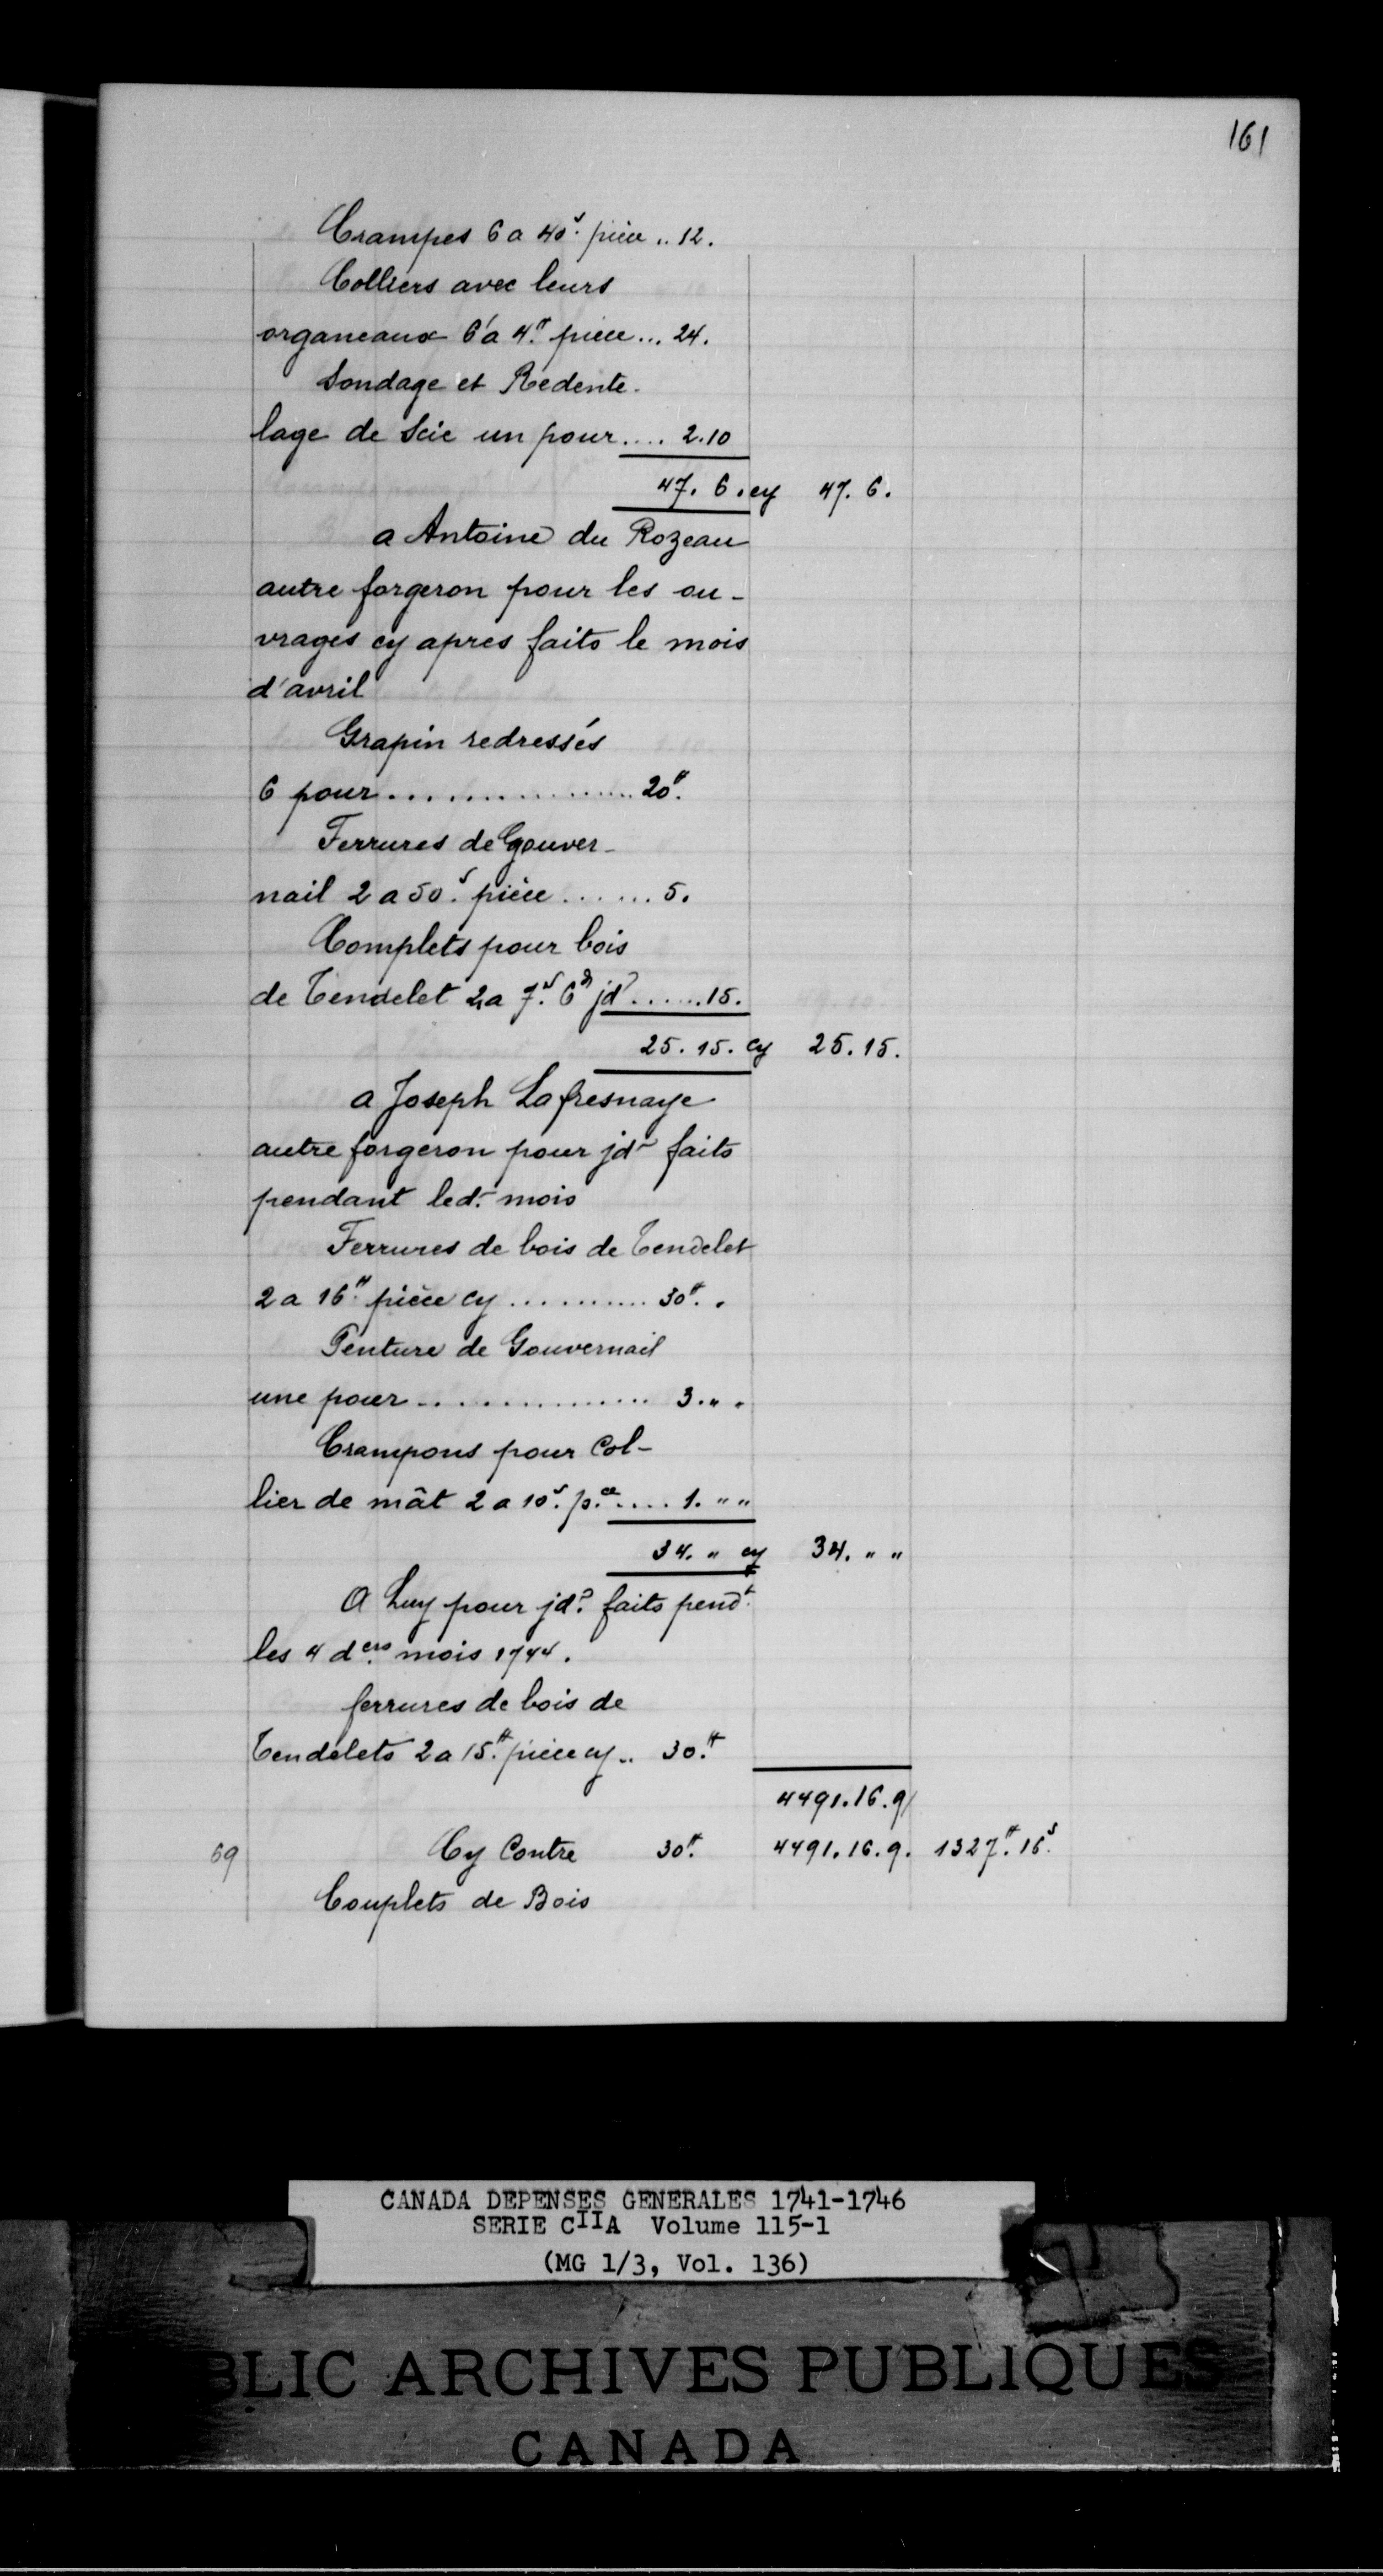 161
Crampes 6 a 40s. pièce .. 12.
Colliers avec leurs
organeaux 6 a 4.# piece ... 24.
Soudage et Redente-
lage de Scie un pour .... 2.10
47. 6. cy 47. 6.
a Antoine du Rozeau
autre forgeron pour les ou-
vrages cy apres faits le mois
d'avril
Grapin redressés
6 pour .................. 20.#
Ferrures de Gouver-
nail 2 a 50.s pièce ....... 5.
Complets pour bois
de Tendelet 2 a 7.s 6.d jd ...... 15.
25. 15. cy 25. 15.
a Joseph Lafresnaye
autre forgeron pour jd. faits
pendant led. mois
Ferrures de bois de Tendelet
2 a 16.# pièce cy ........... 30.# .
Penture de Gouvernail
une pour ................. 3. " .
Crampons pour Col-
lier de mât 2 a 10.s p.ce .... 1. " "
34. " cy 34. " "
A Luy pour jd. faits pend.t
les 4 d.ers mois 1744.
ferrures de bois de
Tendelets 2 a 15.# pièce cy .. 30.#
4491.16.9
69 Cy Contre 30.# 4491.16.9. 1327.# 16.s
Couplets de Bois
CANADA DEPENSES GENERALES 1741-1746
SERIE CIIA Volume 115-1
(MG 1/3, Vol. 136)
BLIC ARCHIVES PUBLIQUES
CANADA